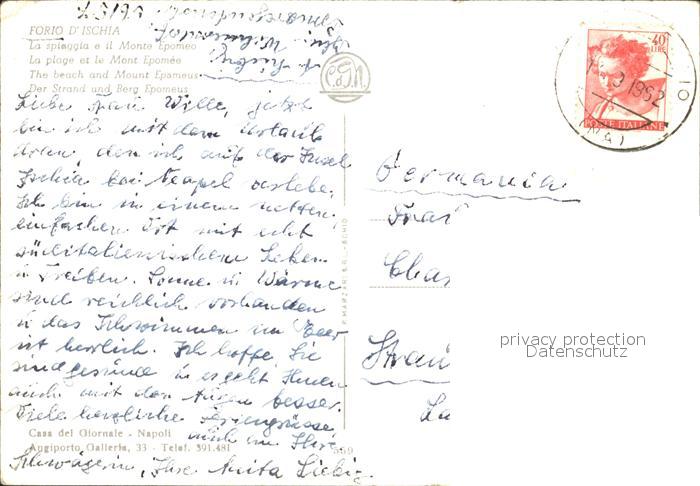 FORIO D'ISCHIA
La spiaggia e il Monte Epomeo
La plage et le Mont Epomée
The beach and Mount Epomeus
Der Strand und Berg Epomeus
Liebe Frau Wille, jetzt
bin ich mit dem Urlaub
dran, den ich auf der Insel
Ischia bei Neapel verlebe.
Ich bin in einem netten,
einfachen Ort mit echt
süditalienischem Leben
u Treiben. Sonne u Wärme
sind reichlich vorhanden
u das Schwimmen im Meer
ist herrlich. Ich hoffe, Sie
sind gesund u es geht Ihnen
auch mit den Augen besser.
Viele herzliche Feriengrüsse
auch an Ihre
Schwägerin, Ihre Anita Liebig.
Casa del Giornale - Napoli
Angiporto Galleria, 33 - Telef. 391.481
559
40
LIRE
1962
POSTE ITALIANE
Germania
Frau
privacy protection
Datenschutz